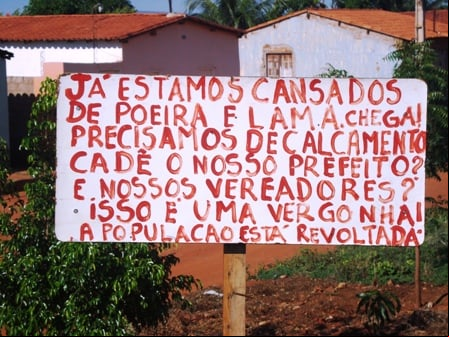 JÁ ESTAMOS CANSADOS
DE POEIRA E LAMA.CHEGA!
PRECISAMOS DE CALÇAMENTO
CADÊ O NOSSO PREFEITO?
E NOSSOS VEREADORES?
ISSO É UMA VERGONHA!
A POPULACAO ESTÁ REVOLTADA